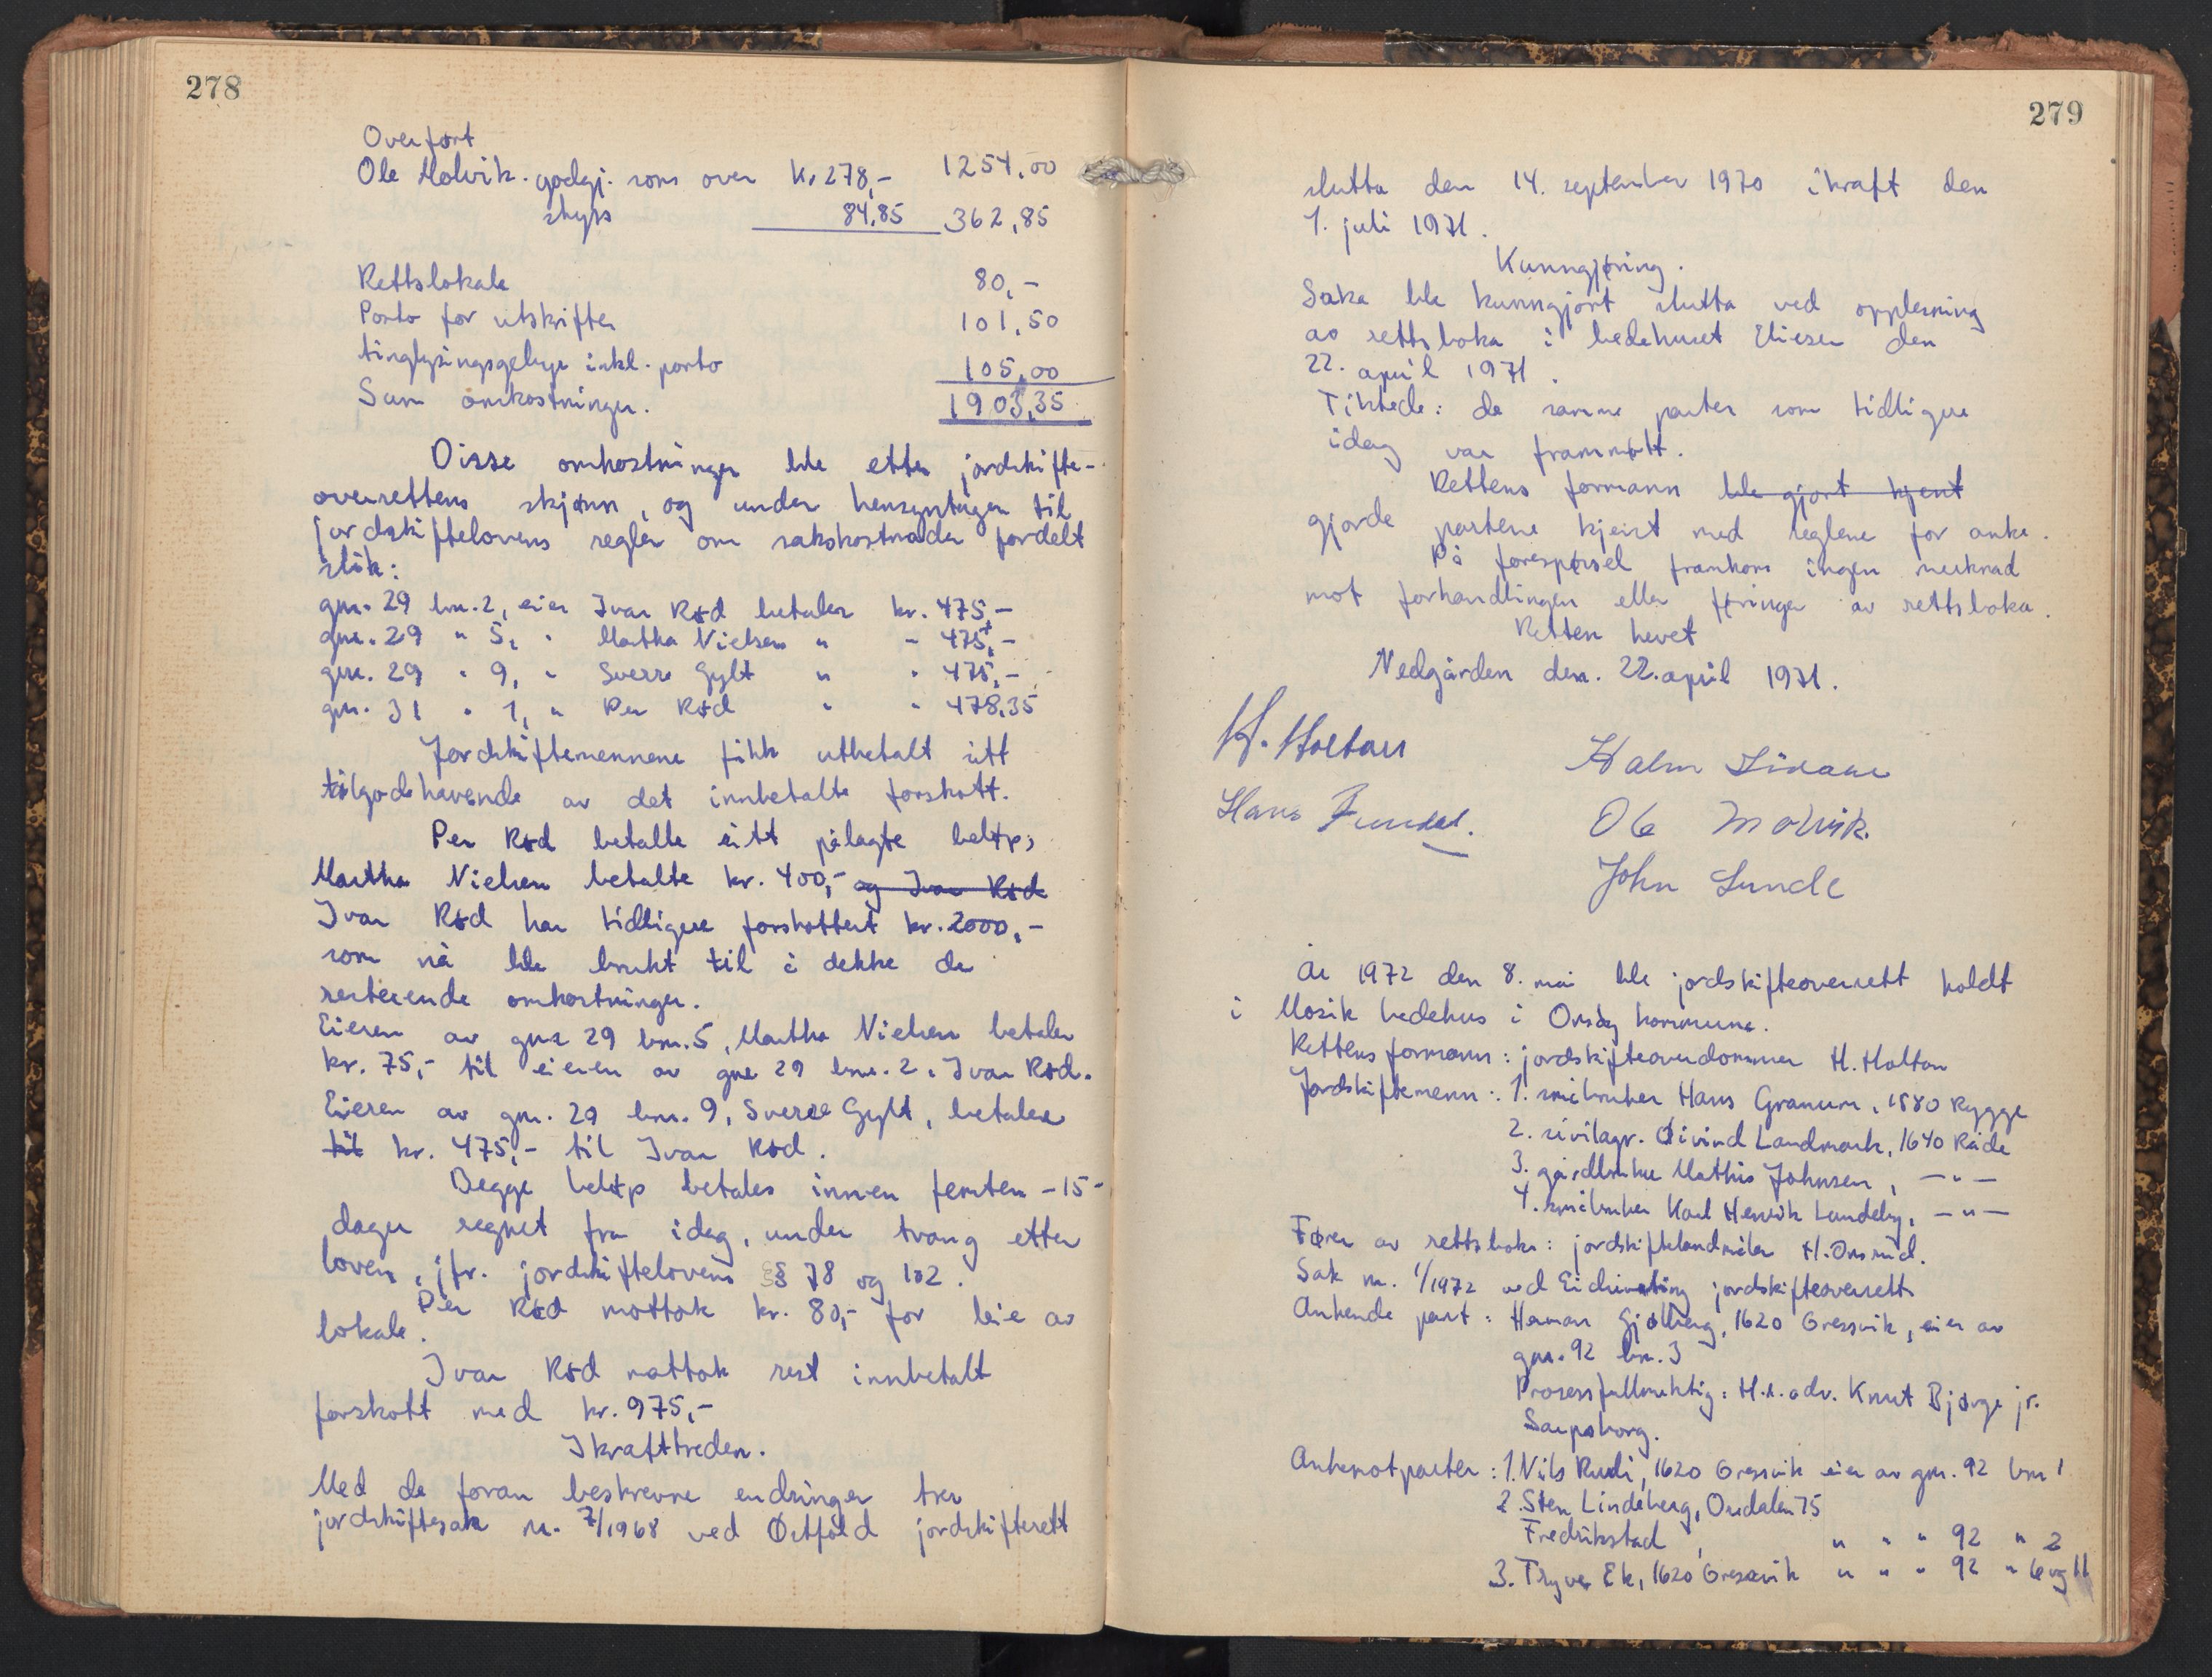 278
Overført
Ole Molvik. godgj. som over kr 278,- 1254,00
skyss 84,85 362,85
Rettslokale 80,-
Porto for utskrifter 101,50
tinglysingsgebyr inkl. porto 105,00
Sum omkostninger. 1903,35
Disse omkostninger ble etter jordskifte-
overrettens skjønn, og under hensyntagen til
jordskiftelovens regler om sakskostnader fordelt
slik:
gnr. 29 bnr. 2, eier Ivar Rød betaler kr. 475,-
gnr. 29 " 5, " Martha Nielsen " " 475,-
gnr. 29 " 9, " Sverre Gylt " " 475,-
gnr. 31 " 1, " Per Rød " " 478,35
Jordskiftemennene fikk utbetalt sitt
tilgodehavende av det innbetalte forskott.
Per Rød betalte sitt pålagte beløp,
Martha Nielsen betalte kr. 400,- og Ivar Rød
Ivar Rød har tidligere forskottert kr. 2000,-
som nå ble brukt til å dekke de
resterende omkostninger.
Eieren av gnr 29 bnr. 5, Martha Nielsen betaler
kr. 75,- til eieren av gnr 29 bnr. 2. Ivar Rød.
Eieren av gnr. 29 bnr. 9, Sverre Gylt, betaler
til kr. 475,- til Ivar Rød.
Begge beløp betales innen femten -15-
dager regnet fra idag, under tvang etter
loven, jfr. jordskiftelovens §§ 78 og 102.
Per Rød mottok kr. 80,- for leie av
lokale.
Ivar Rød mottok rest innbetalt
forskott med kr. 975,-
Ikrafttreden.
Med de foran beskrevne endringer trer
jordskiftesak nr. 7/1968 ved Østfold jordskifterett
279
slutta den 14. september 1970 ikraft den
1. juli 1971.
Kunngjøring.
Saka ble kunngjort slutta ved opplesning
av rettsboka i bedehuset Elieser den
22. april 1971.
Tilstede: de samme parter som tidligere
idag var frammøtt.
Rettens formann ble gjort kjent
gjorde partene kjent med reglene for anke.
På forespørsel framkom ingen merknad
mot forhandlingen eller føringa av rettsboka.
Retten hevet
Nedgården den. 22. april 1971.
H. Holtan
Halm
Hans
Ole Molvik.
John Lunde
År 1972 den 8. mai ble jordskifteoverrett holdt
i Mosik bedehus i Onsøy kommune.
Rettens formann: jordskifteoverdommer H. Holtan
Jordskiftemenn: 1. småbruker Hans Granum, 1580 Rygge
2. sivilagr. Øivind Landmark, 1640 Råde
3. gårdbruker Mathis Johnsen, — " —
4. småbruker Karl Henrik Lundeby, — " —
Fører av rettsboka: jordskiftelandmåler H. Onsrud.
Sak nr. 1/1972 ved Eidsivating jordskifteoverrett
Ankende part: Herman Gjølberg, 1620 Gressvik, eier av
gnr. 92 bnr. 3
Prosessfullmektig: H.r. adv. Knut Bjørge jr.
Sarpsborg.
Ankemotparter: 1. Nils Rudi, 1620 Gressvik eier av gnr. 92 bnr 1
2. Sten Lindeberg, Oredalen 75
Fredrikstad, " " " 92 " 2
3. Trygve Ek, 1620 Gressvik " " " 92 " 6 og 11